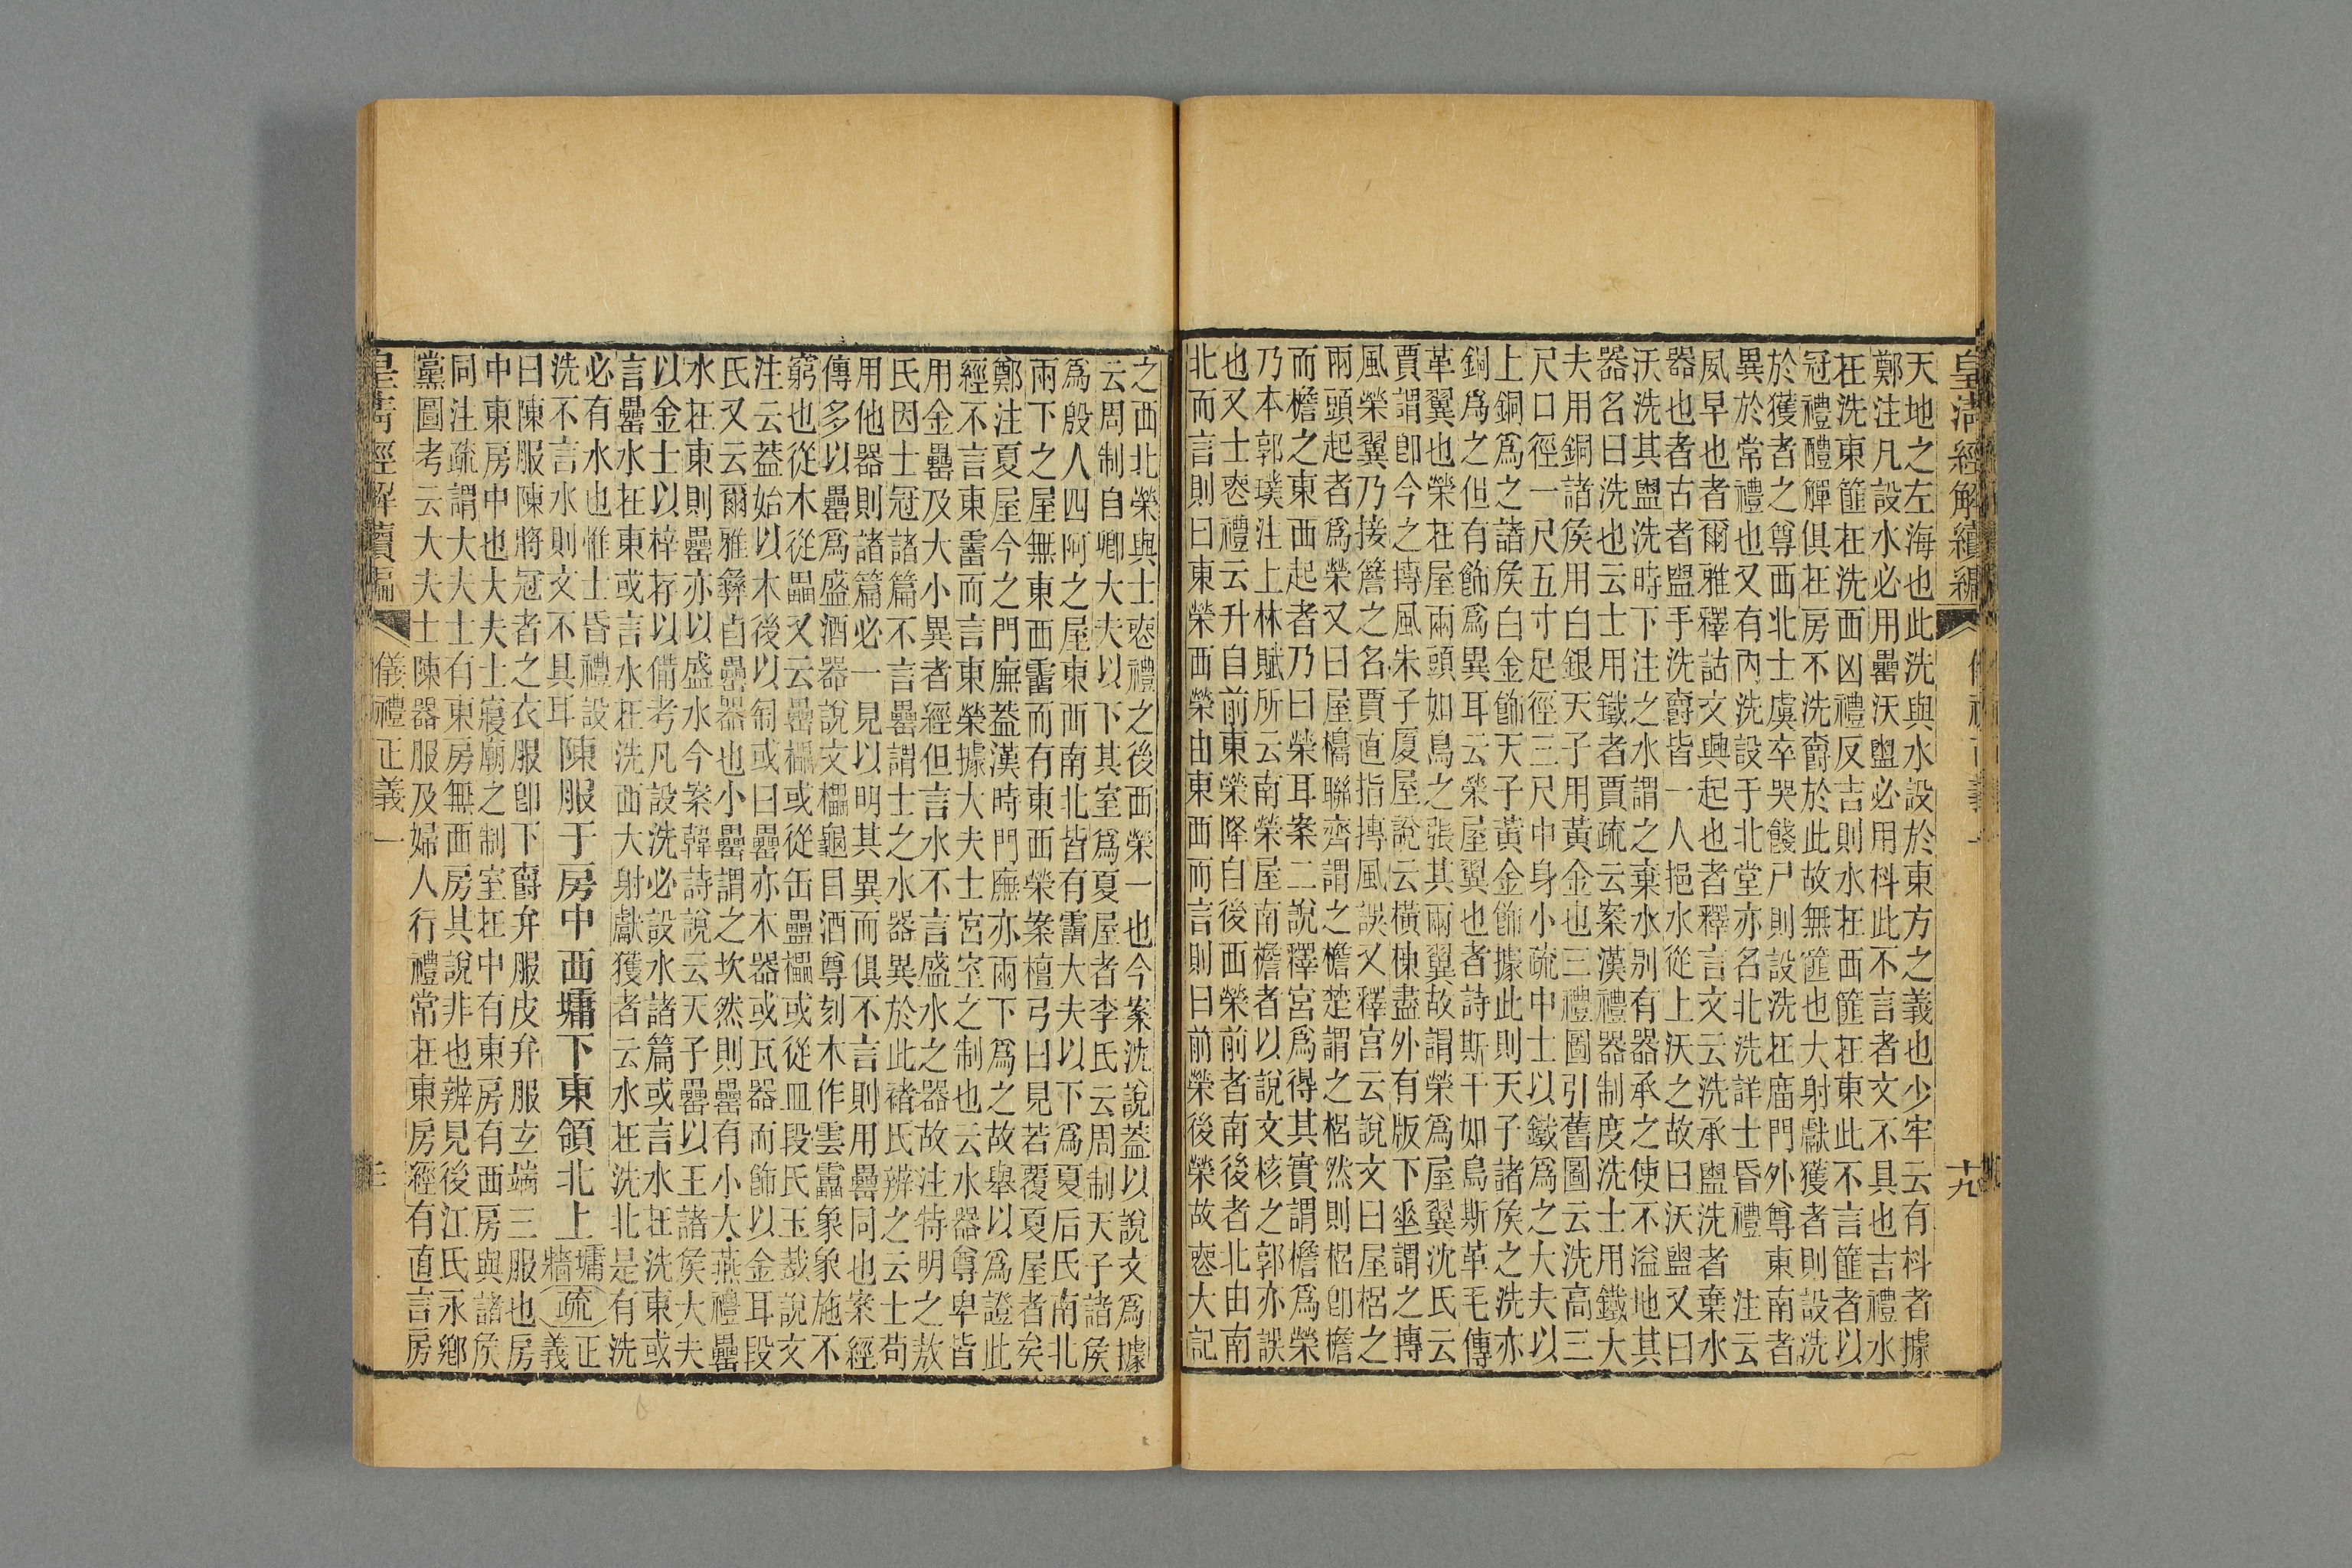 皇清經解續編
十九
天地之左海也此洗與水設於東方之義也少牢云有枓者據
鄭注凡設水必用罍沃盥必用枓此不言者文不具也吉禮水
在洗東篚在洗西凶禮反吉則水在西篚在東此不言篚者以
冠禮醴觶俱在房不洗爵於此故無篚也大射獻獲者則設洗
於獲者之尊西北士虞卒哭餞尸則設洗在廟門外尊東南者
異於常禮也又有內洗設于北堂亦名北洗詳士昏禮 注云
夙早也者爾雅釋詁文興起也者釋言文云洗承盥洗者棄水
器也者古者盥手洗爵皆一人挹水從上沃之故曰沃盥又曰
沃洗其盥洗時下注之水謂之棄水別有器承之使不溢地其
器名曰洗也云士用鐵者賈疏云案漢禮器制度洗士用鐵大
夫用銅諸侯用白銀天子用黃金也三禮圖引舊圖云洗高三
尺口徑一尺五寸足徑三尺中身小疏中士以鐵爲之大夫以
上銅爲之諸侯白金飾天子黃金飾據此則天子諸侯之洗亦
銅爲之但有飾爲異耳云榮屋翼也者詩斯干如鳥斯革毛傳
革翼也榮在屋兩頭如鳥之張其兩翼故謂榮爲屋翼沈氏云
賈謂卽今之摶風朱子厦屋說云橫棟盡外有版下垂謂之摶
風榮翼乃接簷之名賈直指摶風誤又釋宮云說文曰屋梠之
兩頭起者爲榮又曰屋櫋聯齊謂之檐楚謂之梠然則梠卽檐
而檐之東西起者乃曰榮耳案二說釋宮爲得其實謂檐爲榮
乃本郭璞注上林賦所云南榮屋南檐者以說文核之郭亦誤
也又士喪禮云升自前東榮降自後西榮前者南後者北由南
北而言則曰東榮西榮由東西而言則曰前榮後榮故喪大記
之西北榮與士喪禮之後西榮一也今案沈說蓋以說文爲據
云周制自卿大夫以下其室爲夏屋者李氏云周制天子諸侯
爲殷人四阿之屋東西南北皆有霤大夫以下爲夏后氏南北
兩下之屋無東西霤而有東西榮案檀弓曰見若覆夏屋者矣
鄭注夏屋今之門廡蓋漢時門廡亦兩下爲之故舉以爲證此
經不言東霤而言東榮據大夫士宮室之制也云水器尊卑皆
用金罍及大小異者經但言水不言盛水之器故注特明之敖
氏因士冠諸篇不言罍謂士之水器異於此褚氏辨之云士苟
用他器則諸篇必一見以明其異而俱不言則用罍同也案經
傳多以罍爲盛酒器說文櫑龜目酒尊刻木作雲靁象象施不
窮也從木從畾又云罍櫑或從缶䍣櫑或從皿段氏玉裁說文
注云葢始以木後以匋或曰罍亦木器或瓦器而飾以金耳段
氏又云爾雅彝卣罍器也小罍謂之坎然則罍有小大燕禮罍
水在東則罍亦以盛水今案韓詩說云天子罍以玉諸侯大夫
以金士以梓存以備考凡設洗必設水諸篇或言水在洗東或
言罍水在東或言水在洗西大射獻獲者云水在洗北是有洗
必有水也惟士昏禮設
洗不言水則文不具耳
陳服于房中西墉下東領北上
墉
牆
疏
正
義
曰陳服陳將冠者之衣服卽下爵弁服皮弁服玄端三服也房
中東房中也大夫士寢廟之制室在中有東房有西房與諸侯
同注疏謂大夫士有東房無西房其說非也辨見後江氏永鄉
黨圖考云大夫士陳器服及婦人行禮常在東房經有直言房
皇清經解續編
儀禮正義一